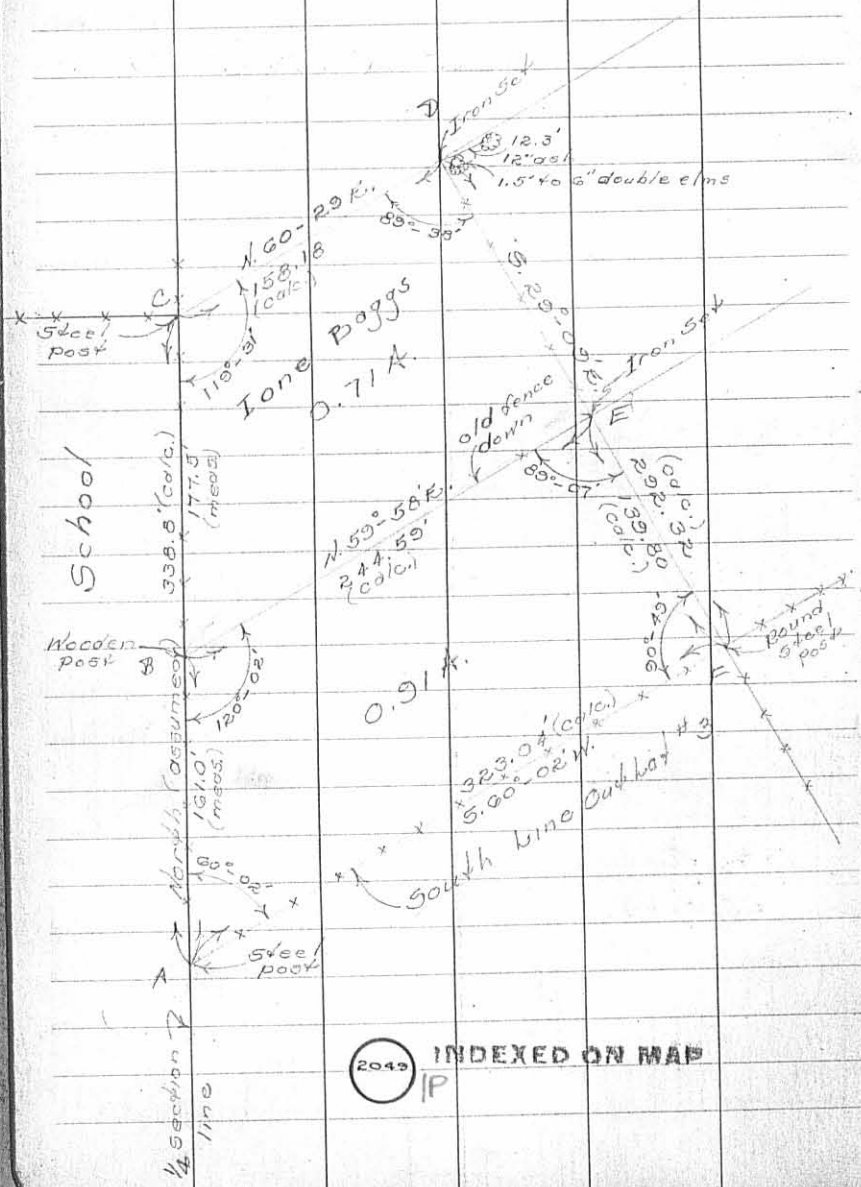 D
Iron Set
12.3'
12" ash
1.5' to 6" double elms
N. 60-29 E.
158.18
(calc.)
89°-38'
C
Steel
post
119°-31'
Ione Baggs
0.71 A.
S. 29°-09' E.
Iron Set
E
old fence
down
89°-07'
School
338.8' (calc.)
177.5'
(meas)
N. 59°-58' E.
244.59'
(calc.)
292.32
(calc.)
139.80
(calc.)
Wooden
post
B
120°-02'
0.91 A.
90°-49'
F
Round
steel
post
North (assumed)
161.0'
(meas.)
323.04' (calc.)
S. 60°-02' W.
South Line Outlot #3
60°-02'
A
Steel
post
1/4 Section
line
2049
INDEXED ON MAP
IP